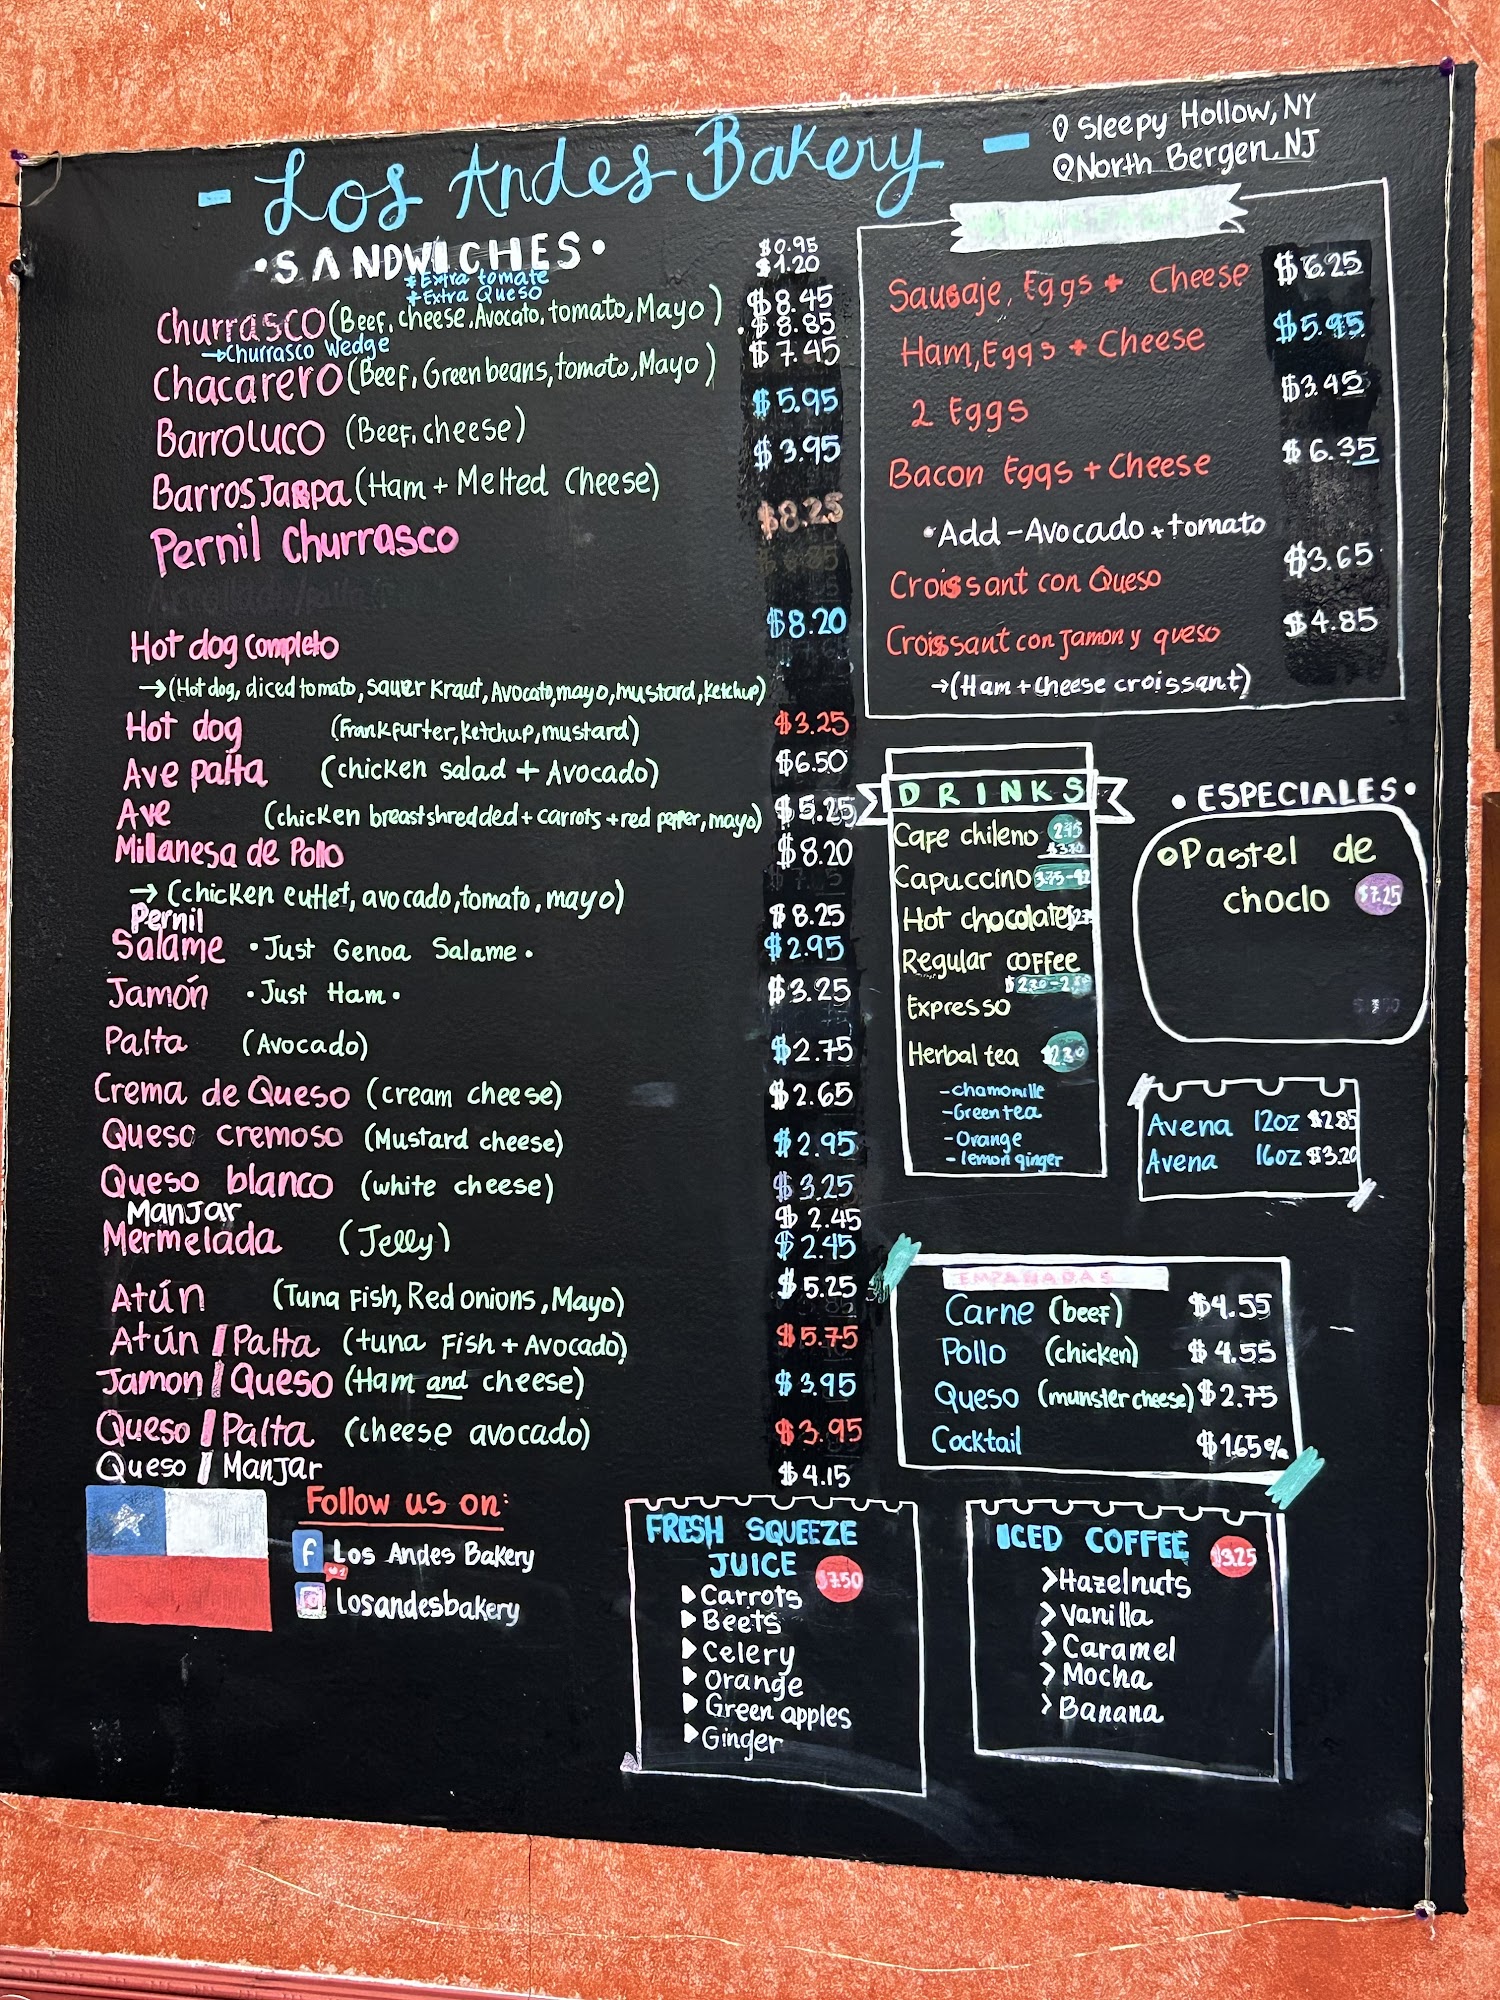 - Los Andes Bakery -
Sleepy Hollow, NY
North Bergen, NJ
•SANDWICHES•
+Extra tomate $0.95
+Extra Queso $1.20
Churrasco (Beef, cheese, Avocato, tomato, Mayo) $8.45
→Churrasco Wedge $8.85
Chacarero (Beef, Green beans, tomato, Mayo) $7.45
Barroluco (Beef, cheese) $5.95
Barros Jarpa (Ham + Melted Cheese) $3.95
Pernil Churrasco $8.25
Hot dog completo $8.20
→(Hot dog, diced tomato, sauer kraut, Avocato, mayo, mustard, ketchup)
Hot dog (Frankfurter, ketchup, mustard) $3.25
Ave palta (chicken salad + Avocado) $6.50
Ave (chicken breast shredded + carrots + red pepper, mayo) $5.25
Milanesa de Pollo $8.20
→ (chicken cutlet, avocado, tomato, mayo)
Pernil $8.25
Salame •Just Genoa Salame• $2.95
Jamón •Just Ham• $3.25
Palta (Avocado) $2.75
Crema de Queso (cream cheese) $2.65
Queso cremoso (Mustard cheese) $2.95
Queso blanco (white cheese) $3.25
Manjar $2.45
Mermelada (Jelly) $2.45
Atún (Tuna Fish, Red onions, Mayo) $5.25
Atún / Palta (tuna Fish + Avocado) $5.75
Jamon / Queso (Ham and cheese) $3.95
Queso / Palta (cheese avocado) $3.95
Queso / Manjar $4.15
Follow us on:
f Los Andes Bakery
Losandesbakery
Sausaje, Eggs + Cheese $6.25
Ham, Eggs + Cheese $5.95
2 Eggs $3.45
Bacon Eggs + Cheese $6.35
•Add - Avocado + tomato
Croissant con Queso $3.65
Croissant con Jamon y queso $4.85
→(Ham + cheese croissant)
DRINKS
Cafe chileno
Capuccino
Hot chocolate
Regular coffee
Expresso
Herbal tea $2.30
-chamomille
-Green tea
-Orange
-lemon ginger
•ESPECIALES•
•Pastel de
choclo $7.25
Avena 12oz $2.85
Avena 16oz $3.20
EMPANADAS
Carne (beef) $4.55
Pollo (chicken) $4.55
Queso (munster cheese) $2.75
Cocktail
FRESH SQUEEZE
JUICE $7.50
Carrots
Beets
Celery
Orange
Green apples
Ginger
ICED COFFEE $3.25
>Hazelnuts
>Vanilla
>Caramel
>Mocha
>Banana